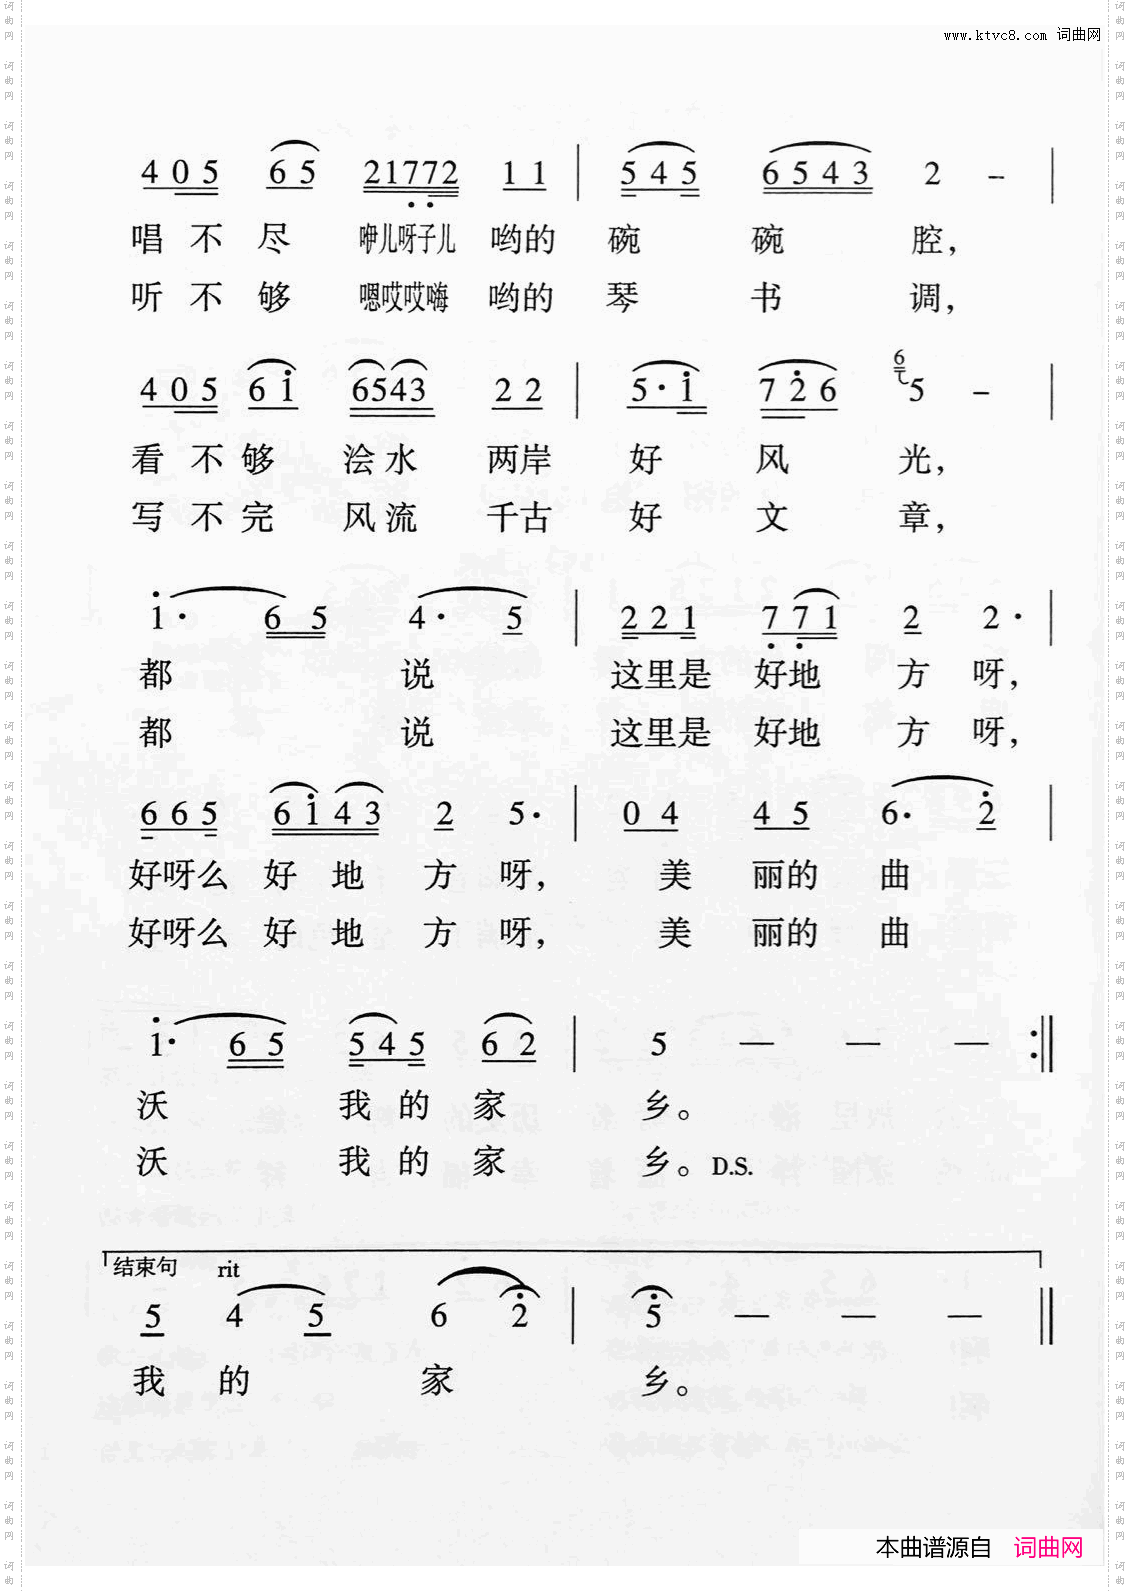 www.ktvc8.com 词曲网
4 0 5 6 5 21772 1 1 | 5 4 5 6 5 4 3 2 - |
唱 不 尽 咿儿呀子儿 哟的 碗 碗 腔，
听 不 够 嗯哎哎嗨 哟的 琴 书 调，
6
4 0 5 6 1 6543 2 2 | 5 · 1 7 2 6 5 - |
看 不 够 浍 水 两岸 好 风 光，
写 不 完 风 流 千古 好 文 章，
1 · 6 5 4 · 5 | 2 2 1 7 7 1 2 2 · |
都 说 这里是 好地 方 呀，
都 说 这里是 好地 方 呀，
6 6 5 6 1 4 3 2 5 · | 0 4 4 5 6 · 2 |
好呀么 好 地 方 呀， 美 丽的 曲
好呀么 好 地 方 呀， 美 丽的 曲
1 · 6 5 5 4 5 6 2 | 5 — — — :||
沃 我 的 家 乡。
沃 我 的 家 乡。D.S.
结束句 rit
5 4 5 6 2 | 5 — — — ||
我 的 家 乡。
本曲谱源自 词曲网